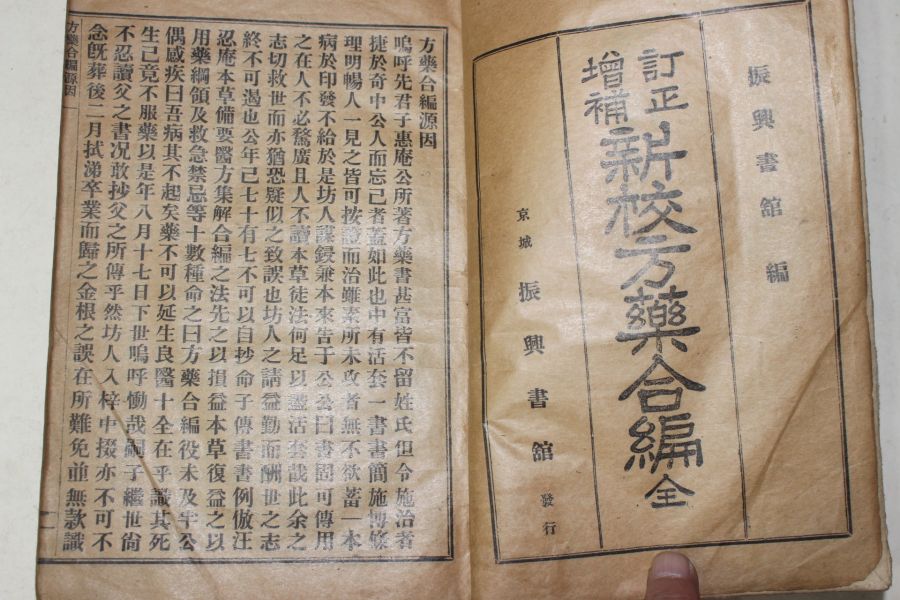 振興書館編
訂正
增補
新校方藥合編全
京城振興書館發行
方藥合編源因
嗚呼先君子惠庵公所著方藥書甚富皆不留姓氏但令施治者
捷於奇中公人而忘己者蓋如此也中有活套一書書簡施博條
理明暢人一見之皆可按證而治雖素所未攻者無不欲蓄一本
病於印發不給於是坊人謀鋟兼本來告于公公曰書固可傳用
之在人不必騖廣且人不讀本草徒法何足以盡活套哉此余之
志切救世而亦猶恐疑似之致誤也坊人之請益勤而酬世之志
終不可遏也公年已七十有七不可以自抄命子傳書書例倣汪
忍庵本草備要醫方集解合編之法先之以損益本草復益之以
用藥綱領及救急禁忌等十數種命之曰方藥合編役未及半公
偶感疾曰吾病其不起矣藥不可以延生良醫十全在乎識其死
生已竟不服藥以是年八月十七日下世嗚呼慟哉嗣子繼世尙
不忍讀父之書况敢抄父之所傳乎然坊人入梓中掇亦不可不
念旣葬後二月拭涕卒業而歸之金根之誤在所難免並無款識
方藥合編源因
一